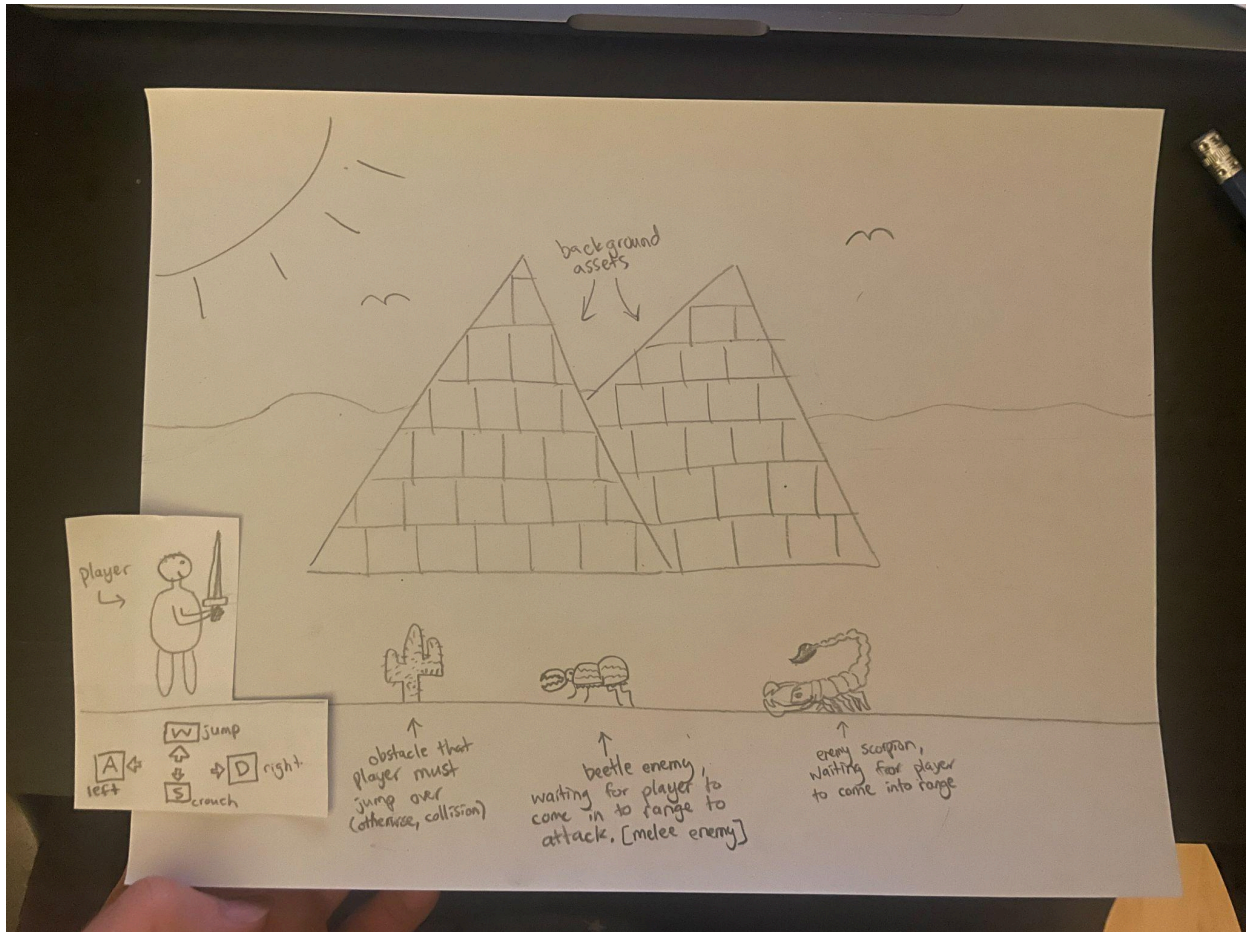 background
assets
player
W jump
A
D right
left
S crouch
obstacle that
player must
jump over
(otherwise, collision)
beetle enemy,
waiting for player to
come in to range to
attack. [melee enemy]
enemy scorpion,
waiting for player
to come into range